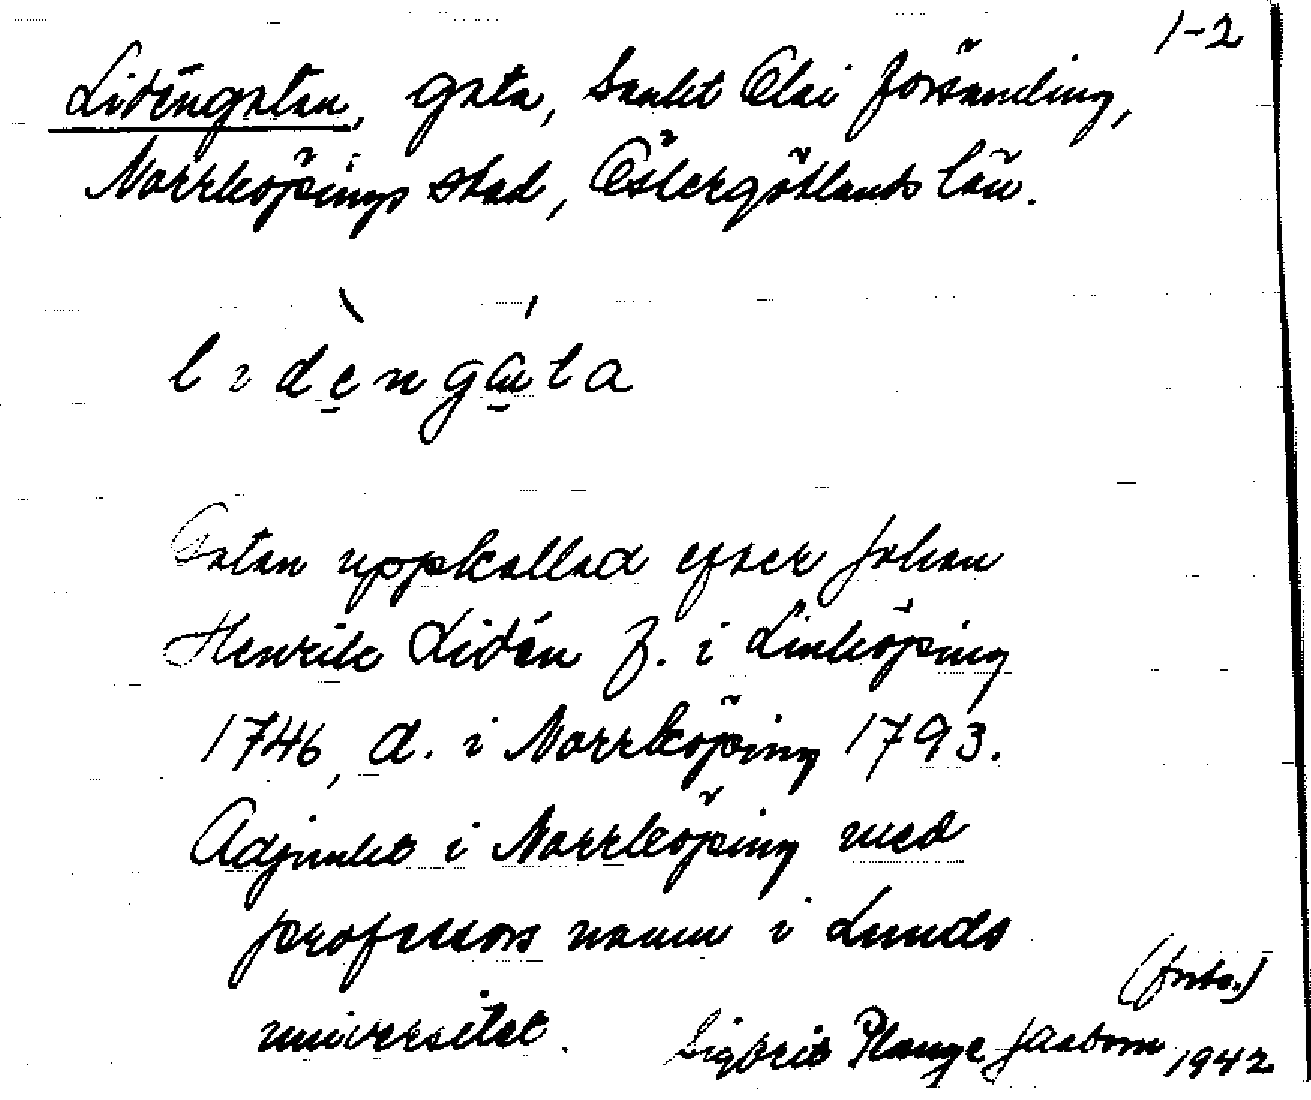 1-2
Lidéngatan, gata, Sankt Olai församling,
Norrköpings stad, Östergötlands län.
lidèngáta
Gatan uppkallad efter Johan
Henrik Lidén f. i Linköping
1746, d. i Norrköping 1793.
Adjunkt i Norrköping med
professors namn i Lunds
universitet.
(forts.)
Sigbrit Plange Jaabom 1942